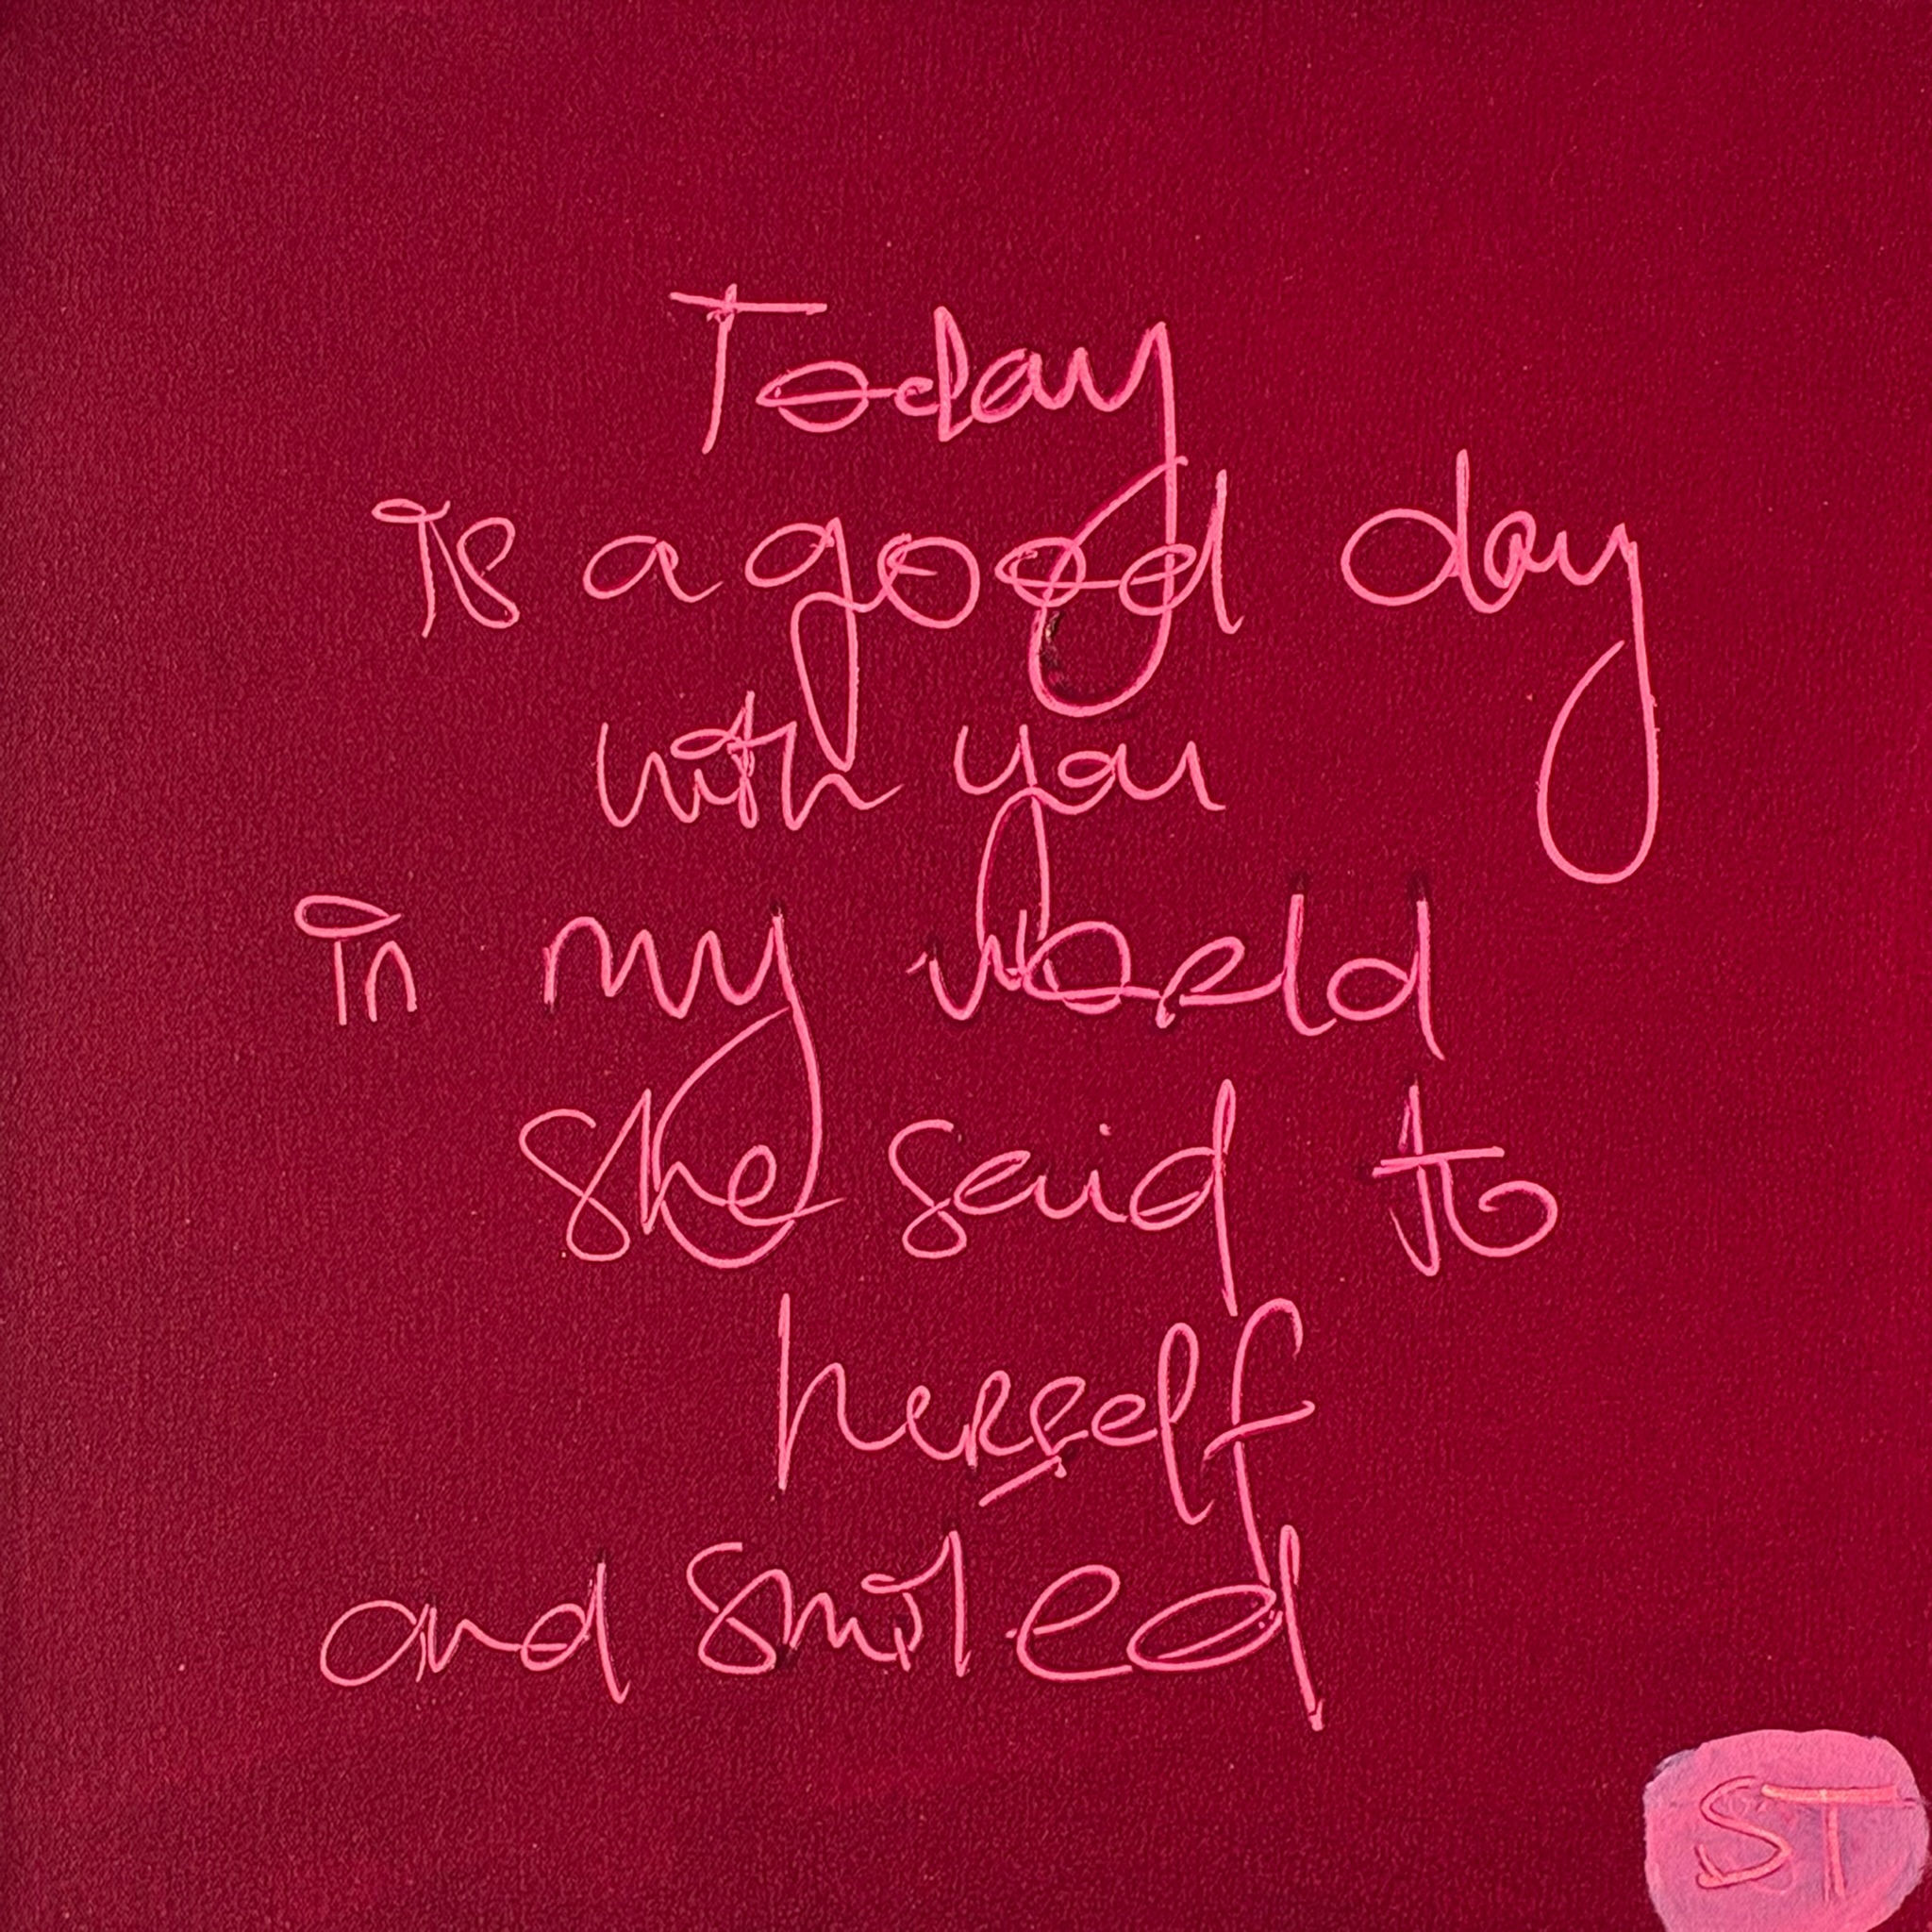 Today
is a good day
with you
in my world
she said to
herself
and smiled
ST